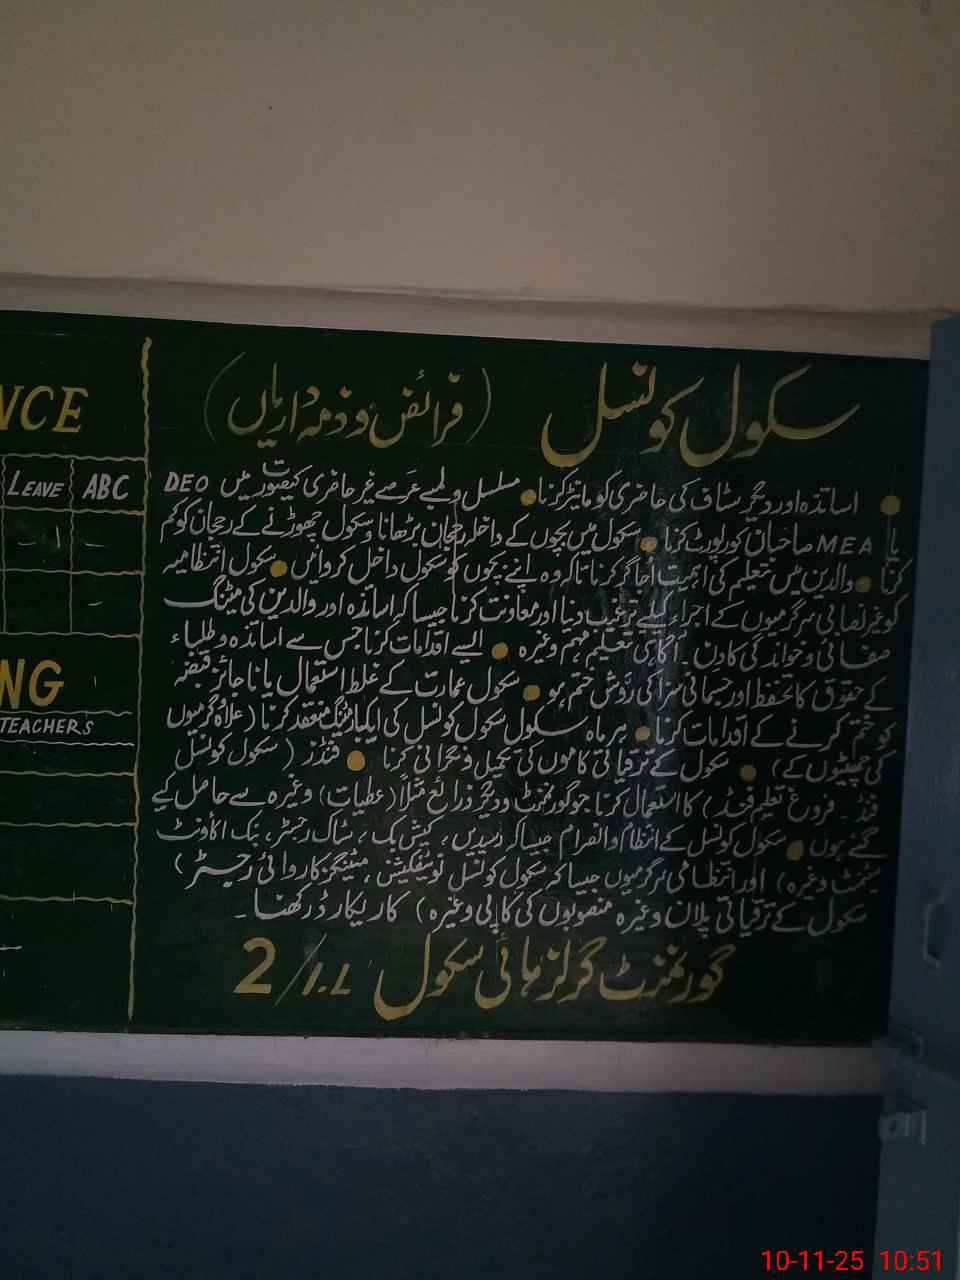 NCE
LEAVE ABC
– 1 –
–
NG
TEACHERS
سکول کونسل (فرائض و ذمہ داریاں)
● اساتذہ اور دیگر سٹاف کی حاضری کو مانیٹر کرنا ● مسلسل و لمبے عرصے غیر حاضری کی صورت میں DEO
یا MEA صاحبان کو رپورٹ کرنا ● سکول میں بچوں کے داخلہ رجحان بڑھانا و سکول چھوڑنے کے رجحان کو کم
کرنا ● والدین میں تعلیم کی اہمیت اُجاگر کرنا تاکہ وہ اپنے بچوں کو سکول داخل کروائیں ● سکول انتظامیہ
کو غیر نصابی سرگرمیوں کے اجراء کیلئے ترغیب دینا اور معاونت کرنا جیسا کہ اساتذہ اور والدین کی میٹنگ
صفائی و خواندگی کا دن ۔ آگاہی تعلیم مہم وغیرہ ● ایسے اقدامات کرنا جس سے اساتذہ و طلباء
کے حقوق کا تحفظ اور جسمانی سزا کی روش ختم ہو ● سکول عمارت کے غلط استعمال یا ناجائز قبضہ
کو ختم کرنے کے اقدامات کرنا ● ہر ماہ سکول کونسل کی ایک بار میٹنگ منعقد کرنا (علاوہ گرمیوں
کی چھٹیوں کے) ● سکول کے ترقیاتی کاموں کی تکمیل و نگرانی کرنا ● فنڈز (سکول کونسل
فنڈ ۔ فروغ تعلیم فنڈ) کا استعمال کرنا جو گورنمنٹ و دیگر ذرائع مثلاً (عطیات) وغیرہ سے حاصل کیے
گئے ہوں ● سکول کونسل کے انتظام و انصرام جیسا کہ رسیدیں، کیش بک، سٹاک رجسٹر، بنک اکاؤنٹ
سٹیٹمنٹ وغیرہ) اور انتظامی سرگرمیوں جیسا کہ سکول کونسل نوٹیفکیشن، میٹنگز کاروائی رجسٹر)
سکول کے ترقیاتی پلان وغیرہ منصوبوں کی کاپی وغیرہ) کا ریکارڈ رکھنا۔
گورنمنٹ گرلز ہائی سکول 2/1.L
10-11-25 10:51